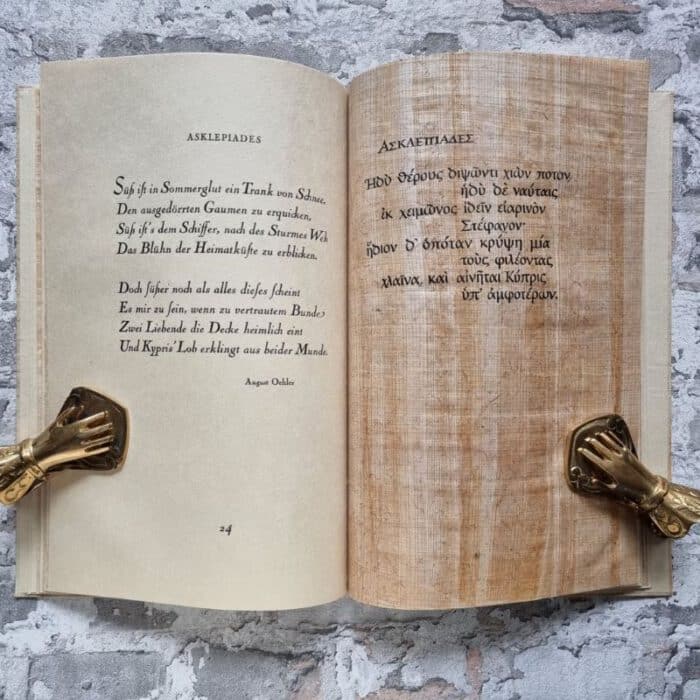 ASKLEPIADES
Süß iſt in Sommerglut ein Trank von Schnee,
Den ausgedörrten Gaumen zu erquicken,
Süß iſt's dem Schiffer, nach des Sturmes Weh
Das Blühn der Heimatküſte zu erblicken.
Doch ſüßer noch als alles dieſes ſcheint
Es mir zu ſein, wenn zu vertrautem Bunde
Zwei Liebende die Decke heimlich eint
Und Kypris' Lob erklingt aus beider Munde.
August Oehler
24
ΑΣΚΛΕΠΙΑΔΕΣ
Ἡδὺ θέρους διψῶντι χιὼν ποτον
ἡδὺ δὲ ναύταις
ἐκ χειμῶνος ἰδεῖν εἰαρινὸν
Στέφανον·
ἥδιον δ' ὁπόταν κρύψῃ μία
τοὺς φιλέοντας
χλαῖνα, καὶ αἰνῆται Κύπρις
ὑπ' ἀμφοτέρων.